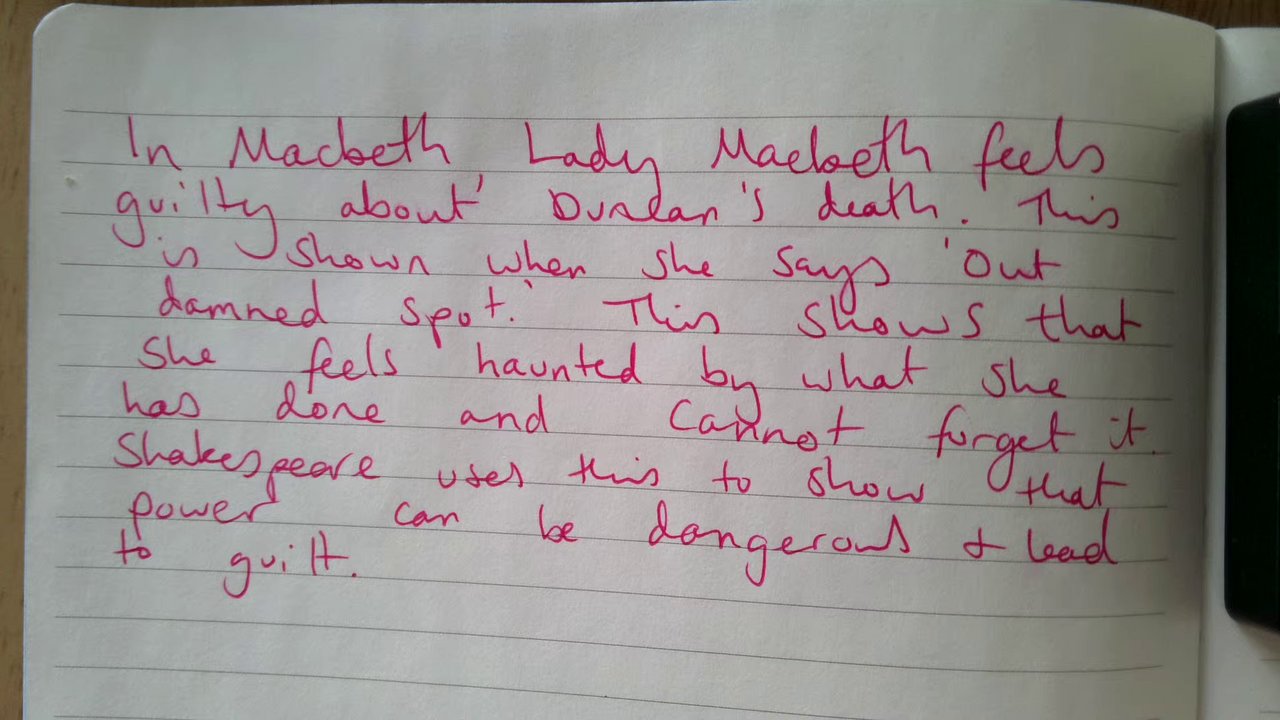 In Macbeth Lady Macbeth feels
guilty about Duncan's death. This
is shown when she says 'Out
damned spot.' This shows that
she feels haunted by what she
has done and cannot forget it.
Shakespeare uses this to show that
power can be dangerous & lead
to guilt.